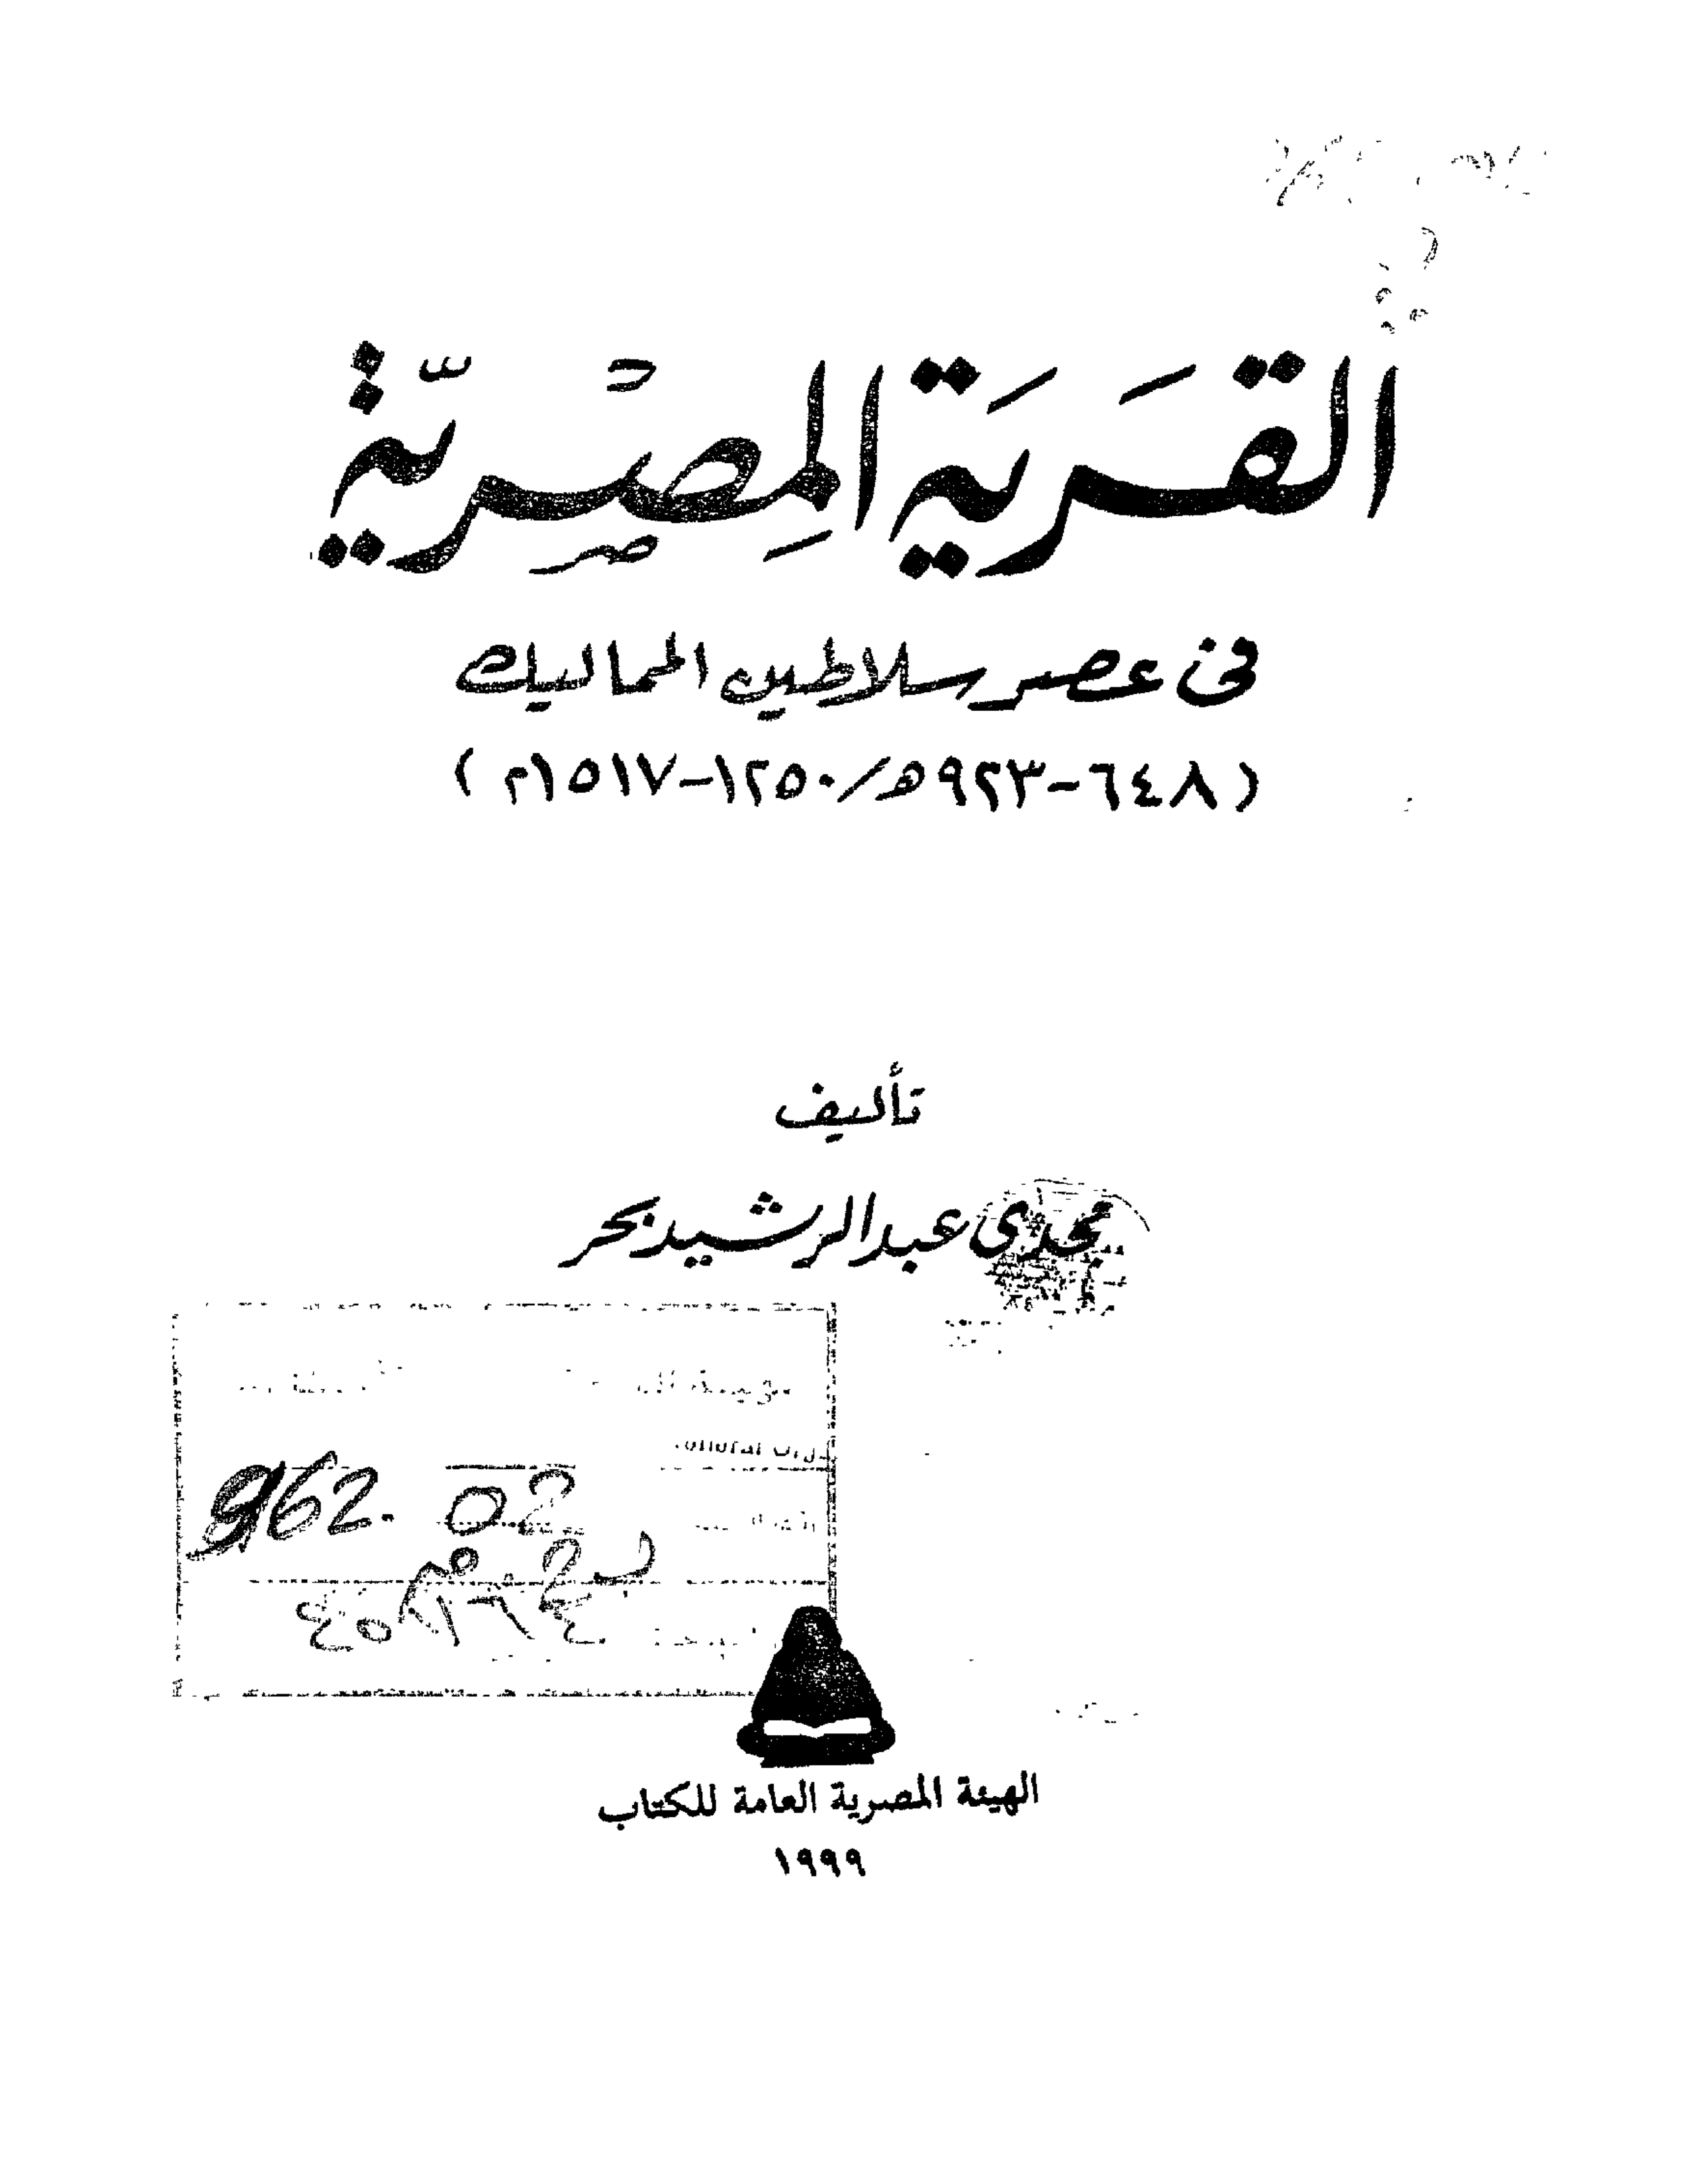 القَرَيَة المِصْريّة
فى عصر سلاطين المماليك
(٦٤٨-٩٢٣ھ/١٢٥٠-١٥١٧م)
تأليف
مجدى عبد الرشيد بحر
962. 02
الهيئة المصرية العامة للكتاب
١٩٩٩